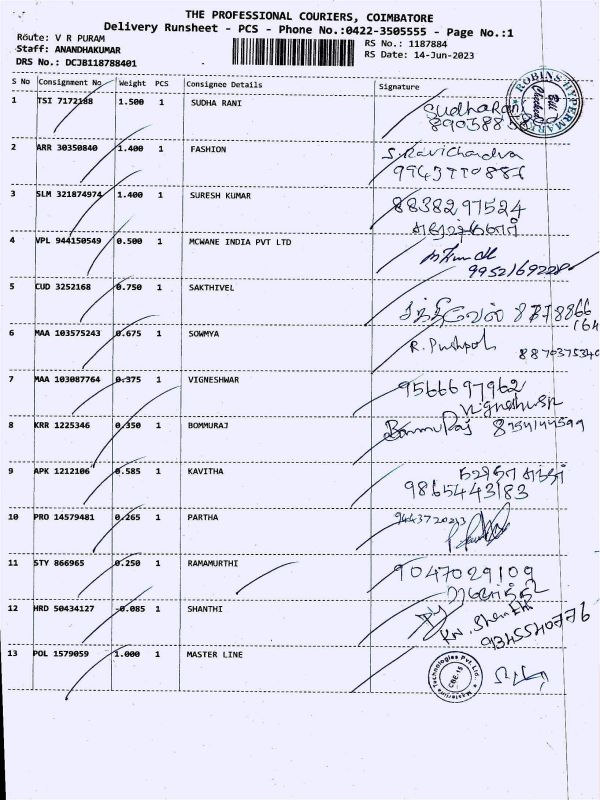 THE PROFESSIONAL COURIERS, COIMBATORE
Delivery Runsheet - PCS - Phone No.:0422-3505555 - Page No.:1
Route: V R PURAM
Staff: ANANDHAKUMAR
DRS No.: DCJB118788401
RS No.: 1187884
RS Date: 14-Jun-2023
S No Consignment No Weight PCS Consignee Details Signature
1 TSI 7172188 1.500 1 SUDHA RANI SudhaRani
ROBINS HYPERMARKET
Bill Checked
2 ARR 30350840 1.400 1 FASHION S. Ravichandra
3 SLM 321874974 1.400 1 SURESH KUMAR 8838297524
4 VPL 944150549 0.500 1 MCWANE INDIA PVT LTD
9952169228
5 CUD 3252168 0.750 1 SAKTHIVEL சக்திவேல்
6 MAA 103575243 0.675 1 SOWMYA R. Pushpa
8870375340
7 MAA 103087764 0.375 1 VIGNESHWAR 9566697962
8 KRR 1225346 0.350 1 BOMMURAJ BommuRaj 8754144599
9 APK 1212106 0.585 1 KAVITHA
9865443183
10 PRO 14579481 0.265 1 PARTHA
11 STY 866965 0.250 1 RAMAMURTHI 9047029109
12 HRD 50434127 0.085 1 SHANTHI
9345540776
13 POL 1579059 1.000 1 MASTER LINE
CBE-15